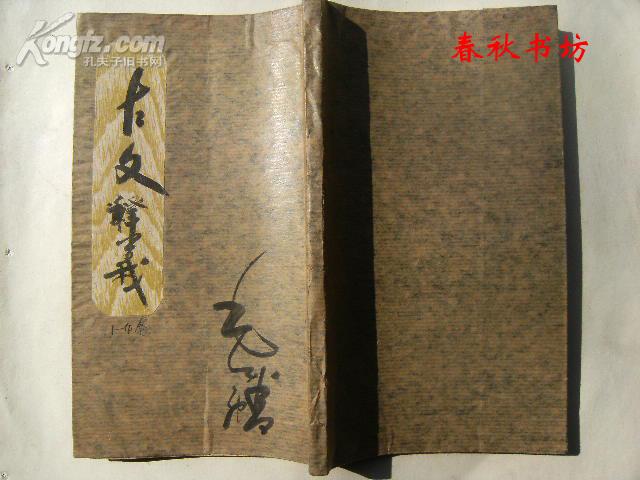 Kongfz.com
孔夫子旧书网
春秋书坊
古文釋義